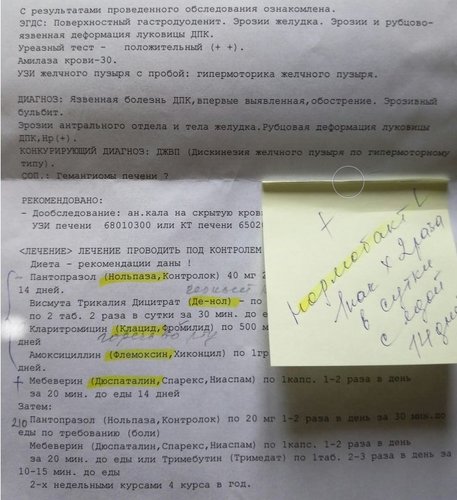 С результатами проведенного обследования ознакомлена.
ЭГДС: Поверхностный гастродуоденит. Эрозии желудка. Эрозии и рубцово-
язвенная деформация луковицы ДПК.
Уреазный тест - положительный (+ +).
Амилаза крови-30.
УЗИ желчного пузыря с пробой: гипермоторика желчного пузыря.
ДИАГНОЗ: Язвенная болезнь ДПК,впервые выявленная,обострение. Эрозивный
бульбит.
Эрозии антрального отдела и тела желудка.Рубцовая деформация луковицы
ДПК,Нр(+).
КОНКУРИРУЮЩИЙ ДИАГНОЗ: ДЖВП (Дискинезия желчного пузыря по гипермоторному
типу).
СОП.: Гемангиомы печени ?
РЕКОМЕНДОВАНО:
- Дообследование: ан.кала на скрытую кровь
УЗИ печени 68010300 или КТ печени 65020
<ЛЕЧЕНИЕ> ЛЕЧЕНИЕ ПРОВОДИТЬ ПОД КОНТРОЛЕМ
Диета - рекомендации даны !
Пантопразол (Нольпаза,Контролок) 40 мг 2
14 дней.
Висмута Трикалия Дицитрат (Де-нол) - по
по 2 таб. 2 раза в сутки за 30 мин. до е
Кларитромицин (Клацид,Фромилид) по 500 м
дней
Амоксициллин (Флемоксин,Хиконцил) по 1гр
дней.
+ Мебеверин (Дюспаталин,Спарекс,Ниаспам) по 1капс. 1-2 раза в день
за 20 мин. до еды 14 дней
Затем:
Пантопразол (Нольпаза,Контролок) по 20 мг 1-2 раза в день за 30 мин.до
еды по требованию (боли)
Мебеверин (Дюспаталин,Спарекс,Ниаспам) по 1капс. 1-2 раза в день
за 20 мин. до еды или Тримебутин (Тримедат) по 1таб. 2-3 раза в день за
10-15 мин. до еды
2-х недельными курсами 4 курса в год.
+
нормобакт L
1пак х 2 раза
в сутки
с едой
14 дней